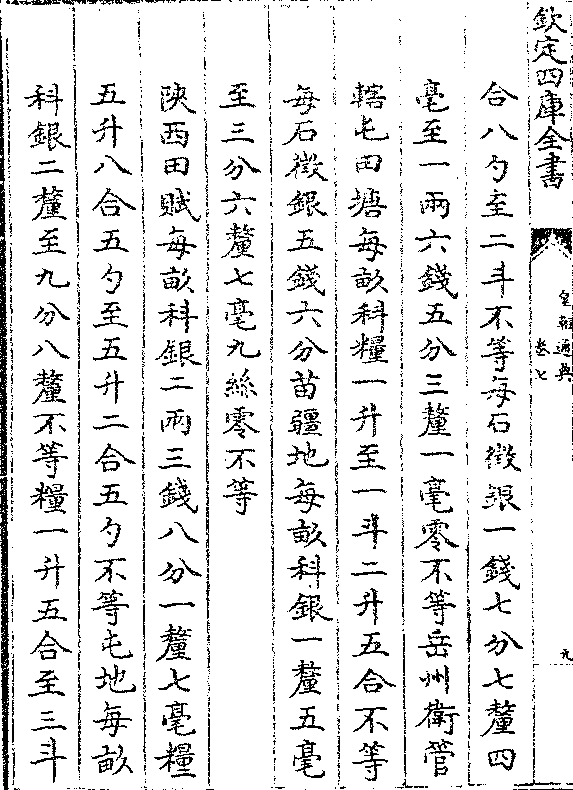 欽定四庫全書
皇朝通典
卷七
九
合八勺至二斗不等每石徵銀一錢七分七釐四
毫至一兩六錢五分三釐一毫零不等岳州衛管
轄屯田塘每畝科糧一升至一斗二升五合不等
每石徵銀五錢六分苗疆地每畝科銀一釐五毫
至三分六釐七毫九絲零不等
陝西田賦每畝科銀二兩三錢八分一釐七毫糧
五升八合五勺至五升二合五勺不等屯地每畝
科銀二釐至九分八釐不等糧一升五合至三斗